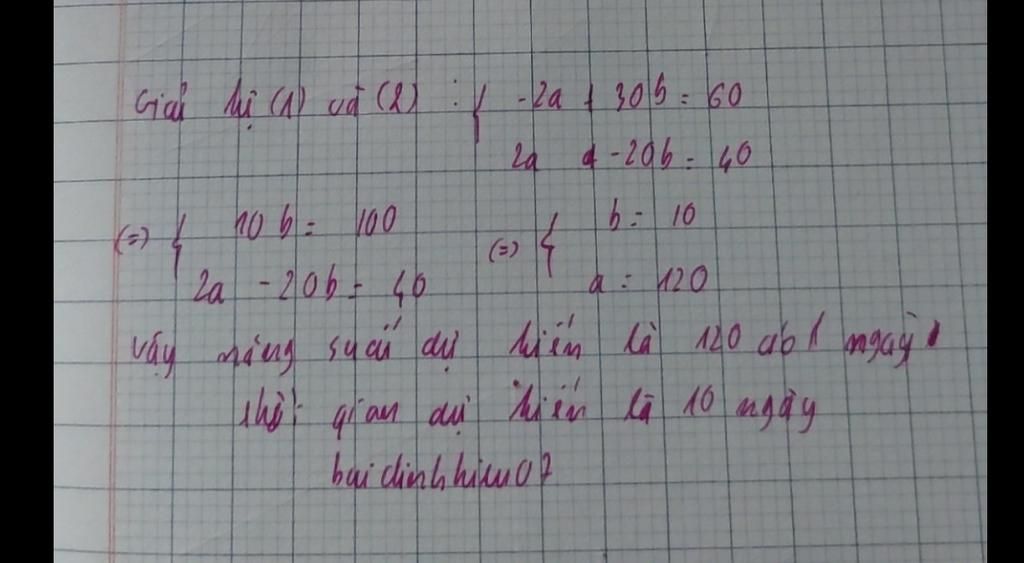 Giải hệ (1) và (2) : { -2a + 30b = 60
2a - 20b = 40
(=) { 10b = 100 (=) { b = 10
2a - 20b = 40 a = 120
Vậy năng suất dự kiến là 120 ab/ ngày
thời gian dự kiến là 10 ngày
buidinhhieu07